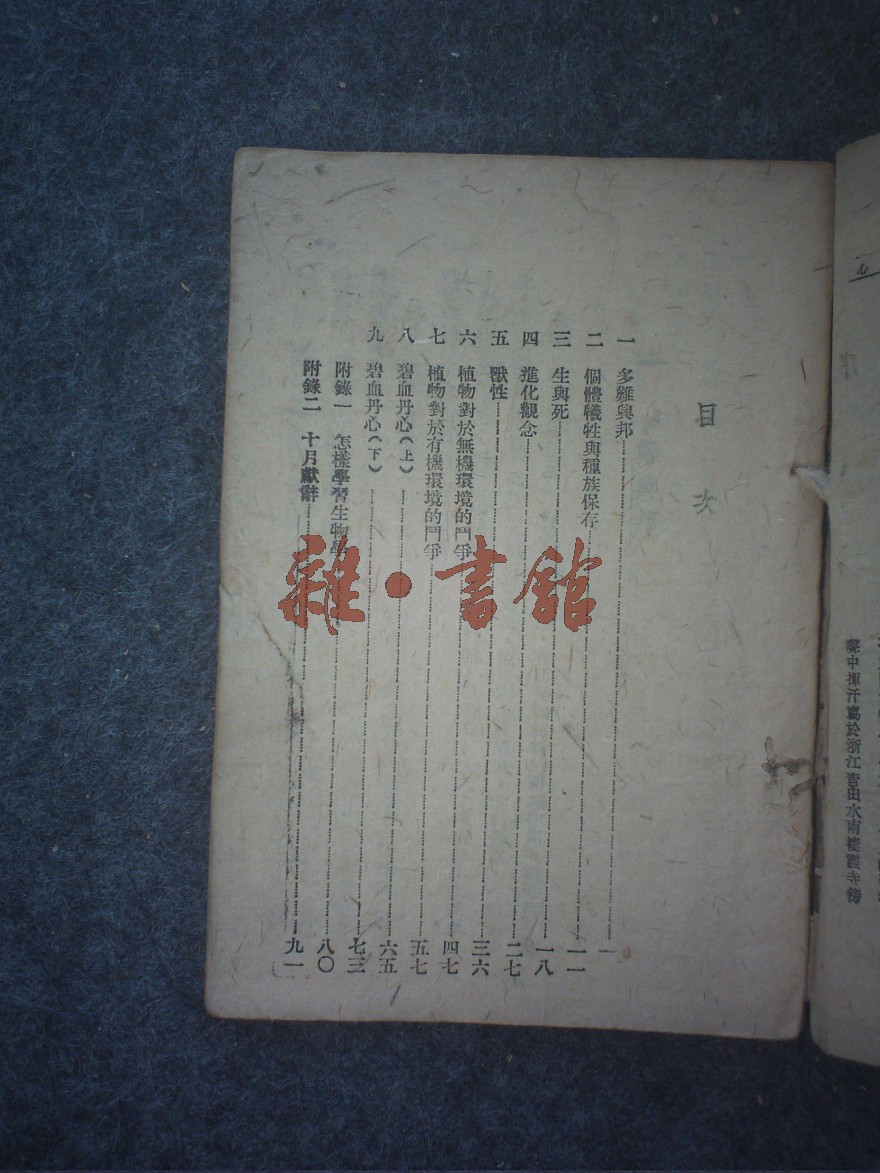 目次
一 多難興邦 一
二 個體犧牲與種族保存 一一
三 生與死 一八
四 進化觀念 二七
五 獸性 三六
六 植物對於無機環境的鬥爭 四七
七 植物對於有機環境的鬥爭 五七
八 碧血丹心(上) 六五
九 碧血丹心(下) 七三
附錄一 怎樣學習生物學 八〇
附錄二 十月獻辭 九一
雜·書館
聲中揮汗寫於浙江青田水南棲霞寺傍